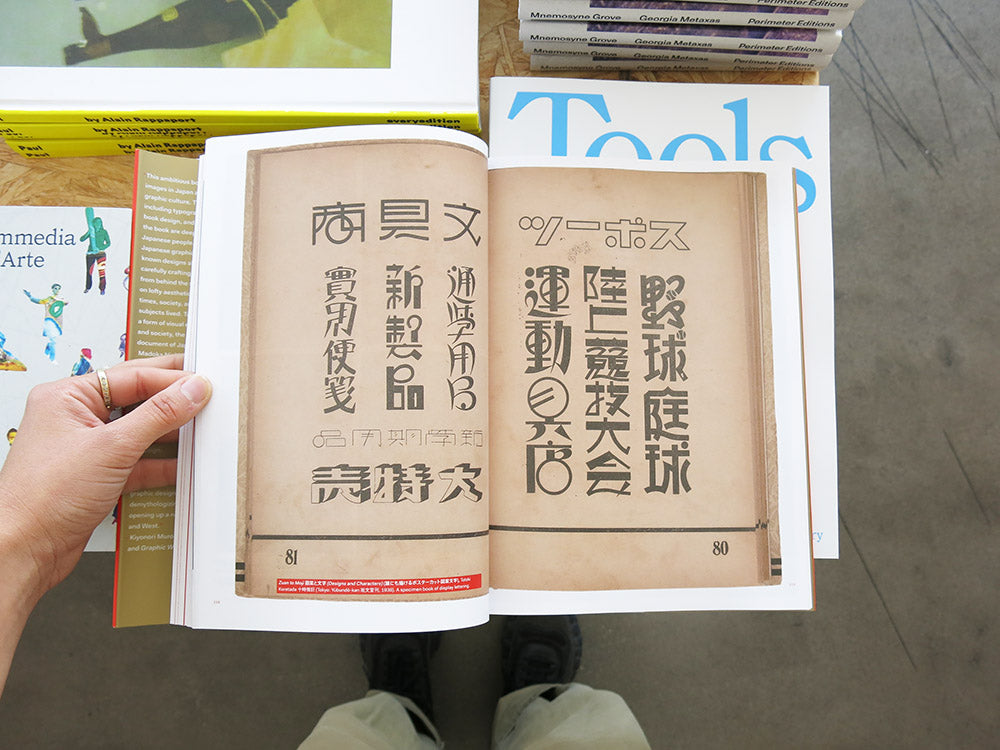 Mnemosyne Grove Georgia Metaxas Perimeter Editions
Mnemosyne Grove Georgia Metaxas Perimeter Editions
Mnemosyne Grove Georgia Metaxas Perimeter Editions
Mnemosyne Grove Georgia Metaxas Perimeter Editions
by Alain Rappaport everyedition
Paul by Alain Rappaport
Tools
mmedia
Arte
This ambitious
images in Japan
graphic culture. T
including typogra
book design, and
the book are de
Japanese people
Japanese graphic
known designs
carefully crafting
from behind the
on lofty aesthetic
times, society, a
subjects lived. T
a form of visual
and society, the
document of Jap
graphic design
demythologiz
opening up a n
and West.
Kiyonori Muro
and Graphic W
スポーツ
野球庭球
陸上競技大会
運動具店
80
文具商
通學用品
新製品
實用便箋
新學期用品
大特売
81
Zuan to Moji 図案と文字 (Designs and Characters) (誰にも描けるポスターカット図案文字),
Koretada (Tokyo: Yūbundō-kan 1930). A specimen book of display lettering.